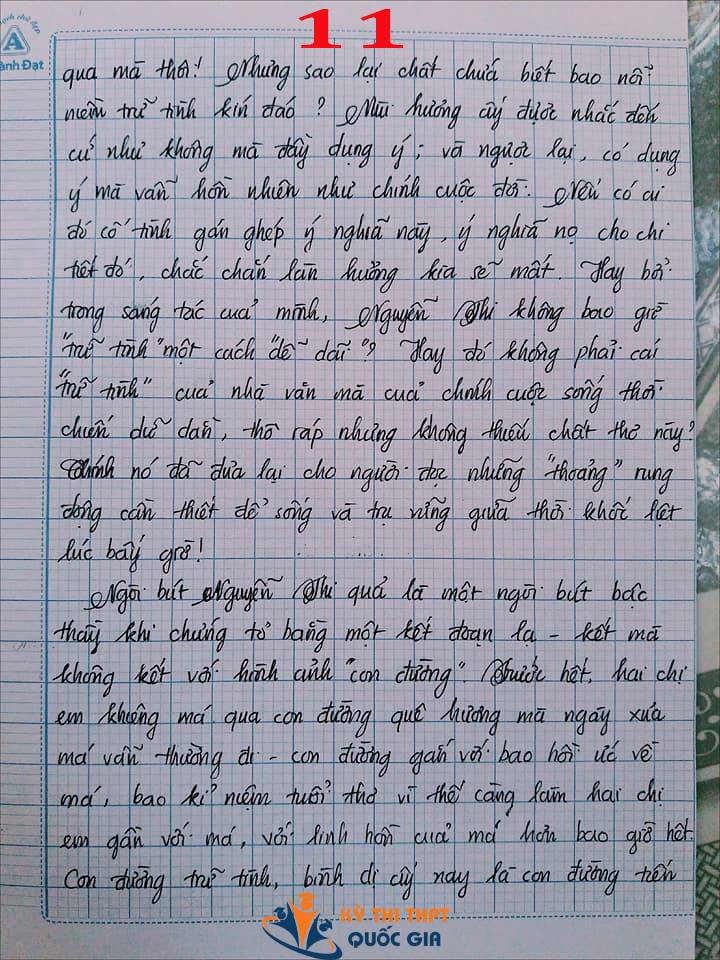 11
A
ành Đạt
qua mà thôi! Nhưng sao lại chất chứa biết bao nỗi
niềm trữ tình kín đáo? Mùi hương ấy được nhắc đến
cứ như không mà đầy dụng ý; và ngược lại, có dụng
ý mà vẫn hồn nhiên như chính cuộc đời. Nếu có ai
đó cố tình gán ghép ý nghĩa này, ý nghĩa nọ cho chi
tiết đó, chắc chắn làn hương kia sẽ mất. Hay bởi
trong sáng tác của mình, Nguyễn Thi không bao giờ
"trữ tình" một cách "dễ dãi"? Hay đó không phải cái
"trữ tình" của nhà văn mà của chính cuộc sống thời
chiến dữ dằn, thô ráp nhưng không thiếu chất thơ này?
Chính nó đã đưa lại cho người đọc những "thoảng" rung
động cần thiết để sống và trụ vững giữa thời khốc liệt
lúc bấy giờ!
Ngòi bút Nguyễn Thi quả là một ngòi bút bậc
thầy khi chứng tỏ bằng một kết đoạn lạ - kết mà
không kết với hình ảnh "con đường". Trước hết, hai chị
em khiêng má qua con đường quê hương mà ngày xưa
má vẫn thường đi - con đường gắn với bao hồi ức về
má, bao kỉ niệm tuổi thơ vì thế càng làm hai chị
em gần với má, với linh hồn của má hơn bao giờ hết.
Con đường trữ tình, bình dị ấy nay là con đường tiến
KỲ THI THPT
QUỐC GIA